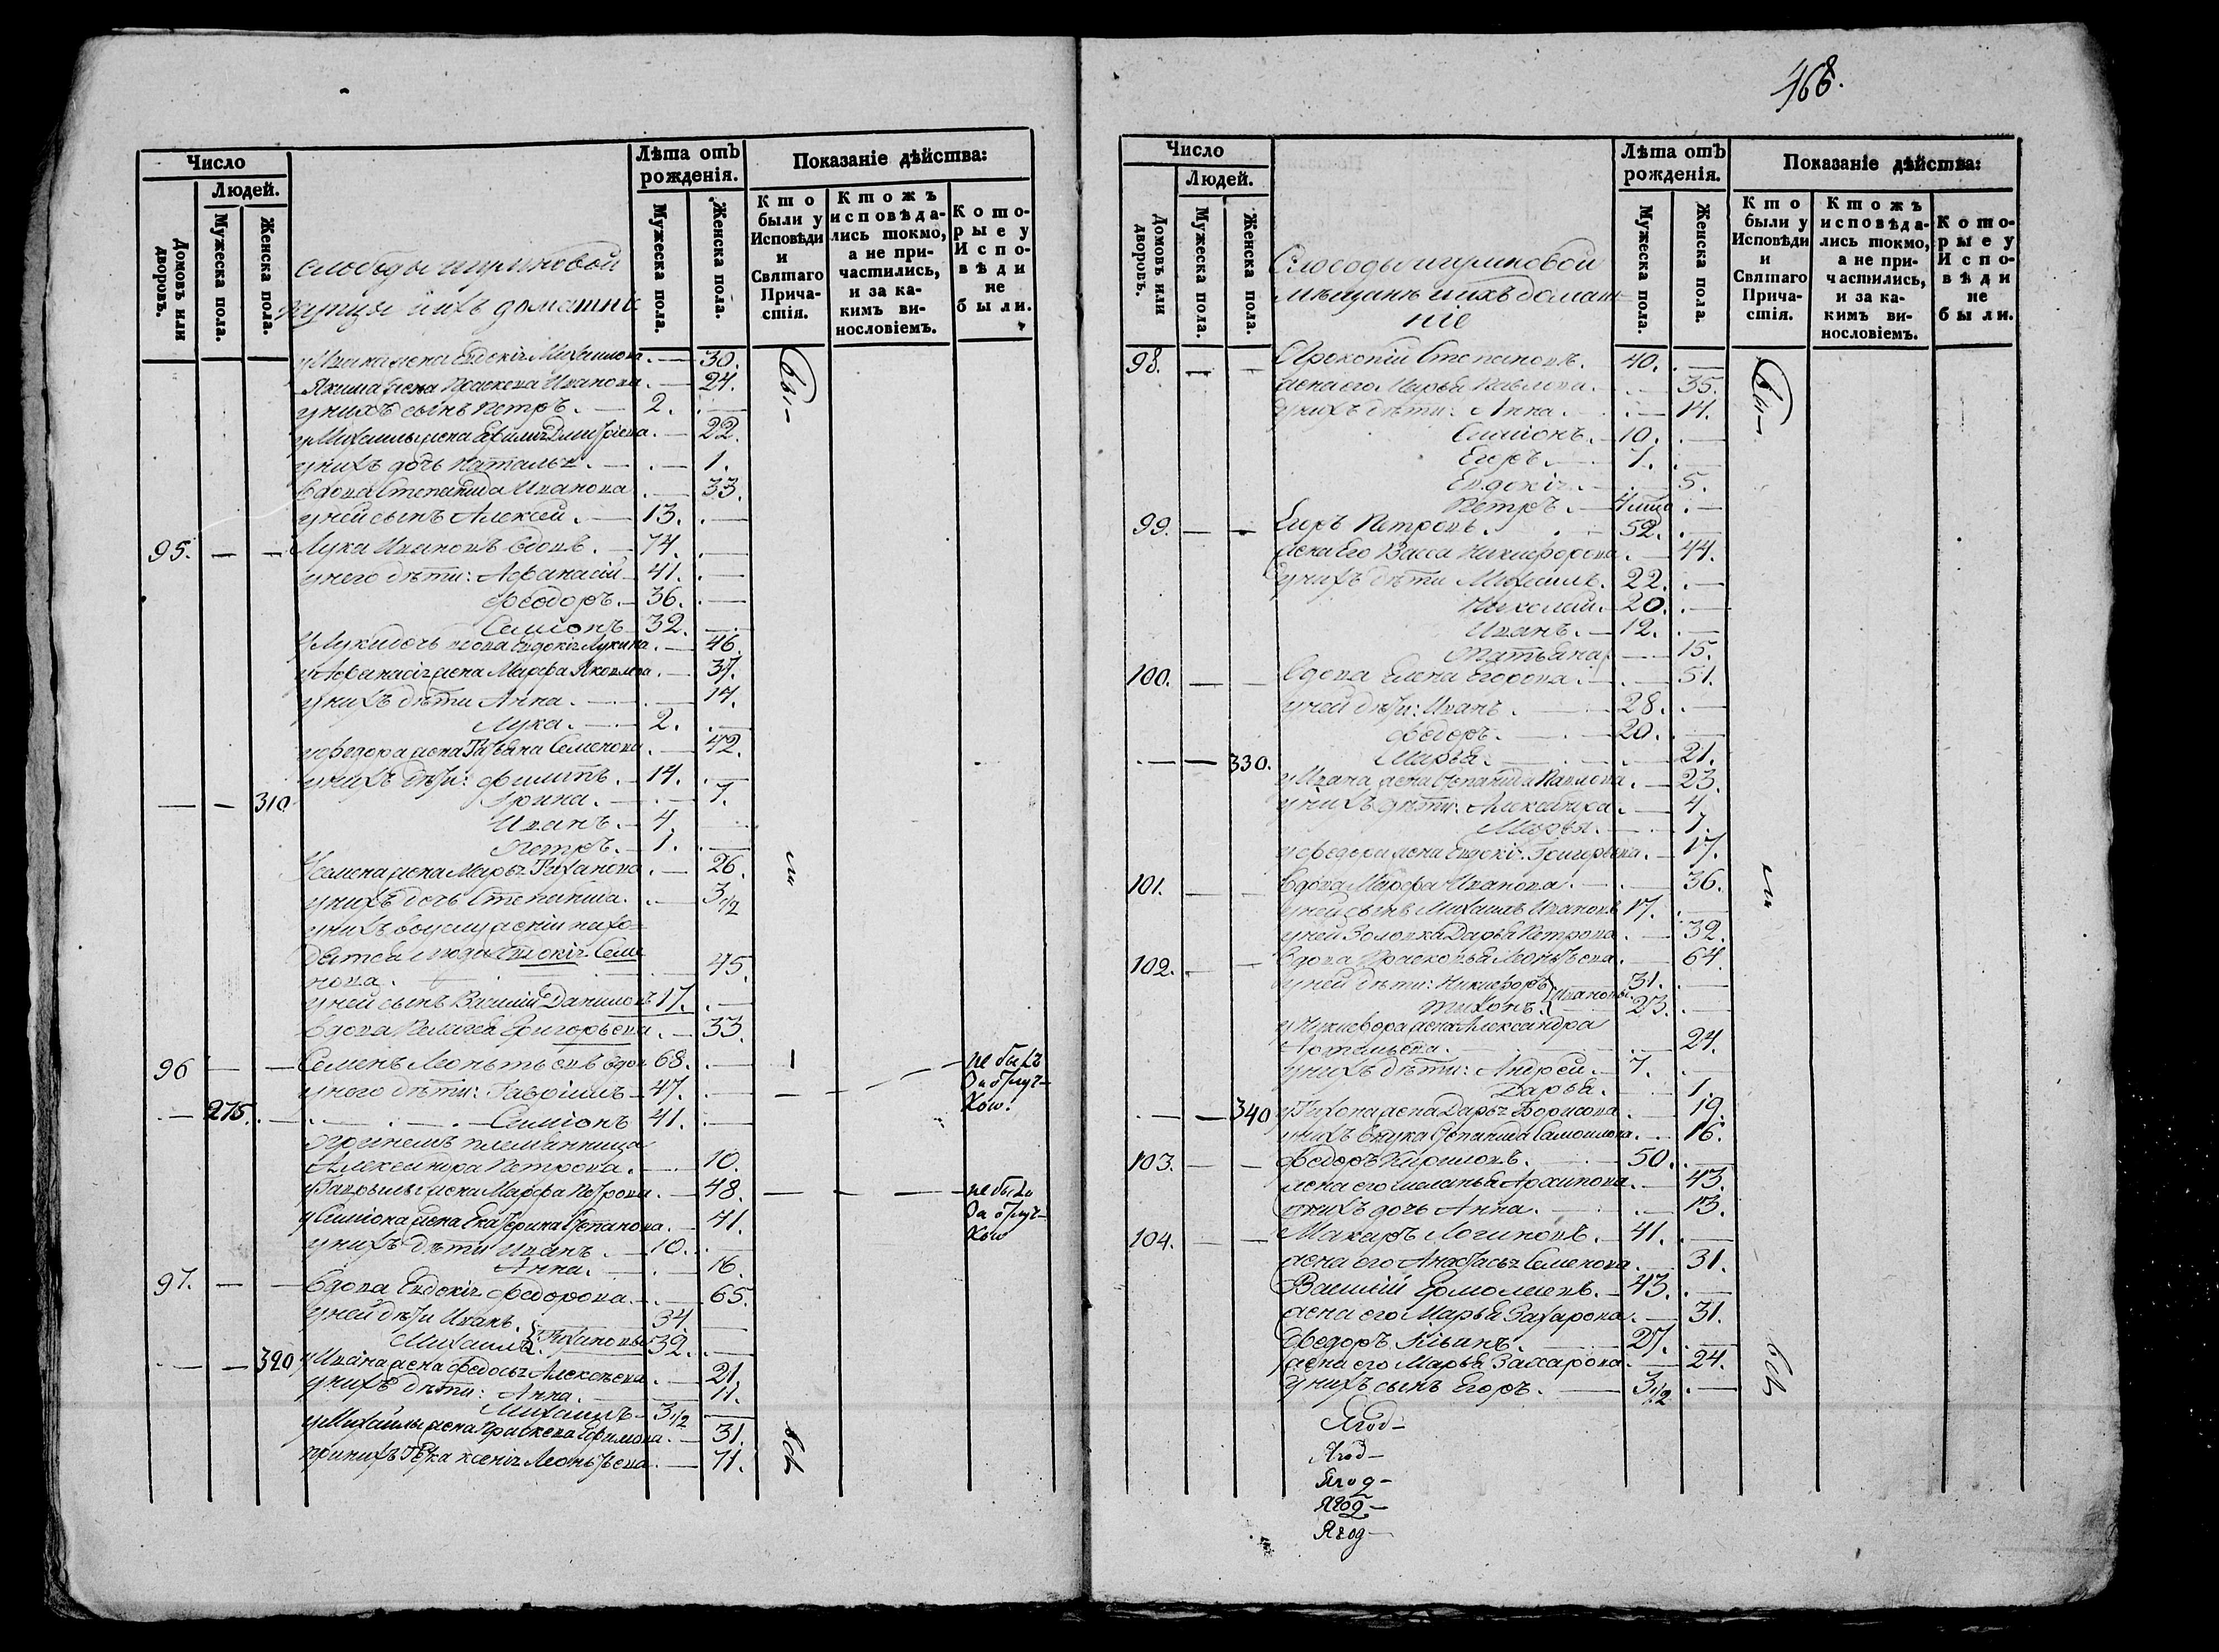 468.
Число
Людей.
Домовъ или дворовъ.
Мужеска пола.
Женска пола.
слободы ширинковой
купцы и ихъ домашніе
Лѣта отъ рожденія.
Мужеска пола.
Женска пола.
Показаніе дѣйства:
Кто были у Исповѣди и Святаго Причастія.
Ктожъ исповѣдались токмо, а не причастились, и за какимъ винословіемъ.
Которые у Исповѣди не были.
у Ивана жена Евдокія Михаилова. — 30.
Якима жена Праскева Иванова. — 24.
у нихъ сынъ Петръ. — 2. . —
у Михаилы жена Дмитріева. — 22.
у нихъ дочь Наталья. — . — 1.
вдова Степанида Иванова . — 33.
у ней сынъ Алексей. — 13. . —
95. — — Лука Ивановъ вдовъ. — 74. . —
у него дѣти: Афанасій — 41. . —
Феодоръ. — 36. . —
Симіонъ — 32. . —
у Луки дочь вдова Евдокія Лукина. — 46.
у Афанасія жена Марфа Яковлева. — 37.
у нихъ дѣти Анна. — . — 14.
Лука. — 2. . —
у Федора жена Татьяна Семенова. — 42.
у нихъ дѣти: Филипъ. — 14. . —
— — 310 Арина. — . — 7.
Иванъ. — 4. . —
Петръ. — 1. . —
У Семена жена Марья Тиханова. — 26.
у нихъ дочь Степанида. . — 3 1/2
у нихъ во услуженіи нахо=
дится вдова Евдокія Семе
нова. — 45.
у ней сынъ Василій Даниловъ 17. . —
вдова Пелагея Григорьева . — 33.
96 — — Семенъ Леонтьевъ вдов 68. . — — не былъ
за отлуч—
кою.
у него дѣти: Гавріилъ — 47. . —
. — 275. . — Симіонъ 41. . —
племянница
Александра Петрова. — 10.
у Гаврилы жена Марфа Петрова. — 48. — — — не была
за отлуч—
кою
у Симіона жена Екатерина Степанова. — 41.
у нихъ дѣти Иванъ. — 10. . —
Анна. — . — 16.
97. — — вдова Евдокія Федорова. — . — 65.
у ней дѣти Иванъ. 34. —
Михаилъ. } Тихановы 32. . —
. — — 320 у Ивана жена Федосья Алексѣева. — 21.
у нихъ дѣти: Анна. — 11.
Михаилъ — 3 1/2 —
у Михайлы жена Праскева Ефимова. — 31.
при нихъ тетка Ксенія Леонтьева. — 71.
бы—
ли
всѣ
Число
Людей.
Домовъ или дворовъ.
Мужеска пола.
Женска пола.
Слободы ширинковой
мѣщанъ и ихъ домаш=
ніе
Лѣта отъ рожденія.
Мужеска пола.
Женска пола.
Показаніе дѣйства:
Кто были у Исповѣди и Святаго Причастія.
Ктожъ исповѣдались токмо, а не причастились, и за какимъ винословіемъ.
Которые у Исповѣди не были.
98. — — Прокопій Степановъ. 40. . —
жена его Марья Павлова. . — 35.
у нихъ дѣти: Анна. . — 14.
Симіонъ. — 10. . —
Егоръ. — 7. . —
Евдокія. — . — 5.
Петръ. — . —
99. — — Егоръ Петровъ. 52. . —
жена Его Васса Никифорова. — 44.
у нихъ дѣти Михаилъ. 22. . —
Николай. — 20. . —
Иванъ. — 12. . —
Татьяна — 15.
100. — — вдова Елена Егорова. — . — 51.
у ней дѣти: Иванъ. — 28. . —
Федоръ. — . — 20. . —
. — — 330. Марья. — 21.
у Ивана жена Степанида Павлова. — 23.
у нихъ дѣти: Александра. — 4.
Марья. — . — 1.
у Федора жена Евдокі. Григорьева. — 17.
101. — — вдова Марфа Иванова. — . — 36.
у ней сынъ Михаилъ Ивановъ 17. . —
у ней золовка Дарья Петрова. — 32.
102. — — вдова Прасковья Леонтьева. — 64.
у ней дѣти: Никифоръ } Ивановы 31. . —
Тихонъ. 23. . —
у Никифора жена Александра
. — 24.
у нихъ дѣти: Андрей. — 7. . —
Дарья. — . — 1.
. — — 340 у Тихона жена Дарья Борисова. — 19.
у нихъ внука Степанида Самоилова. — 16.
103. — — Федоръ Кириловъ. — 50. . —
жена его Меланья Архипова. — 43.
у нихъ дочь Анна. — . — 13.
104. — — Макаръ Логиновъ. — 41. . —
жена его Анастасья Семенова. — 31.
Василій Ермолаевъ. — 43. . —
жена его Марья Захарова. — 31.
Федоръ — 27. . —
жена его Марья Захарова. — 24.
у нихъ сынъ Егоръ. — 3 1/2 . —
Ягод—
Ягод—
Ягод—
Ягод—
Ягод—
бы—
ли
всѣ